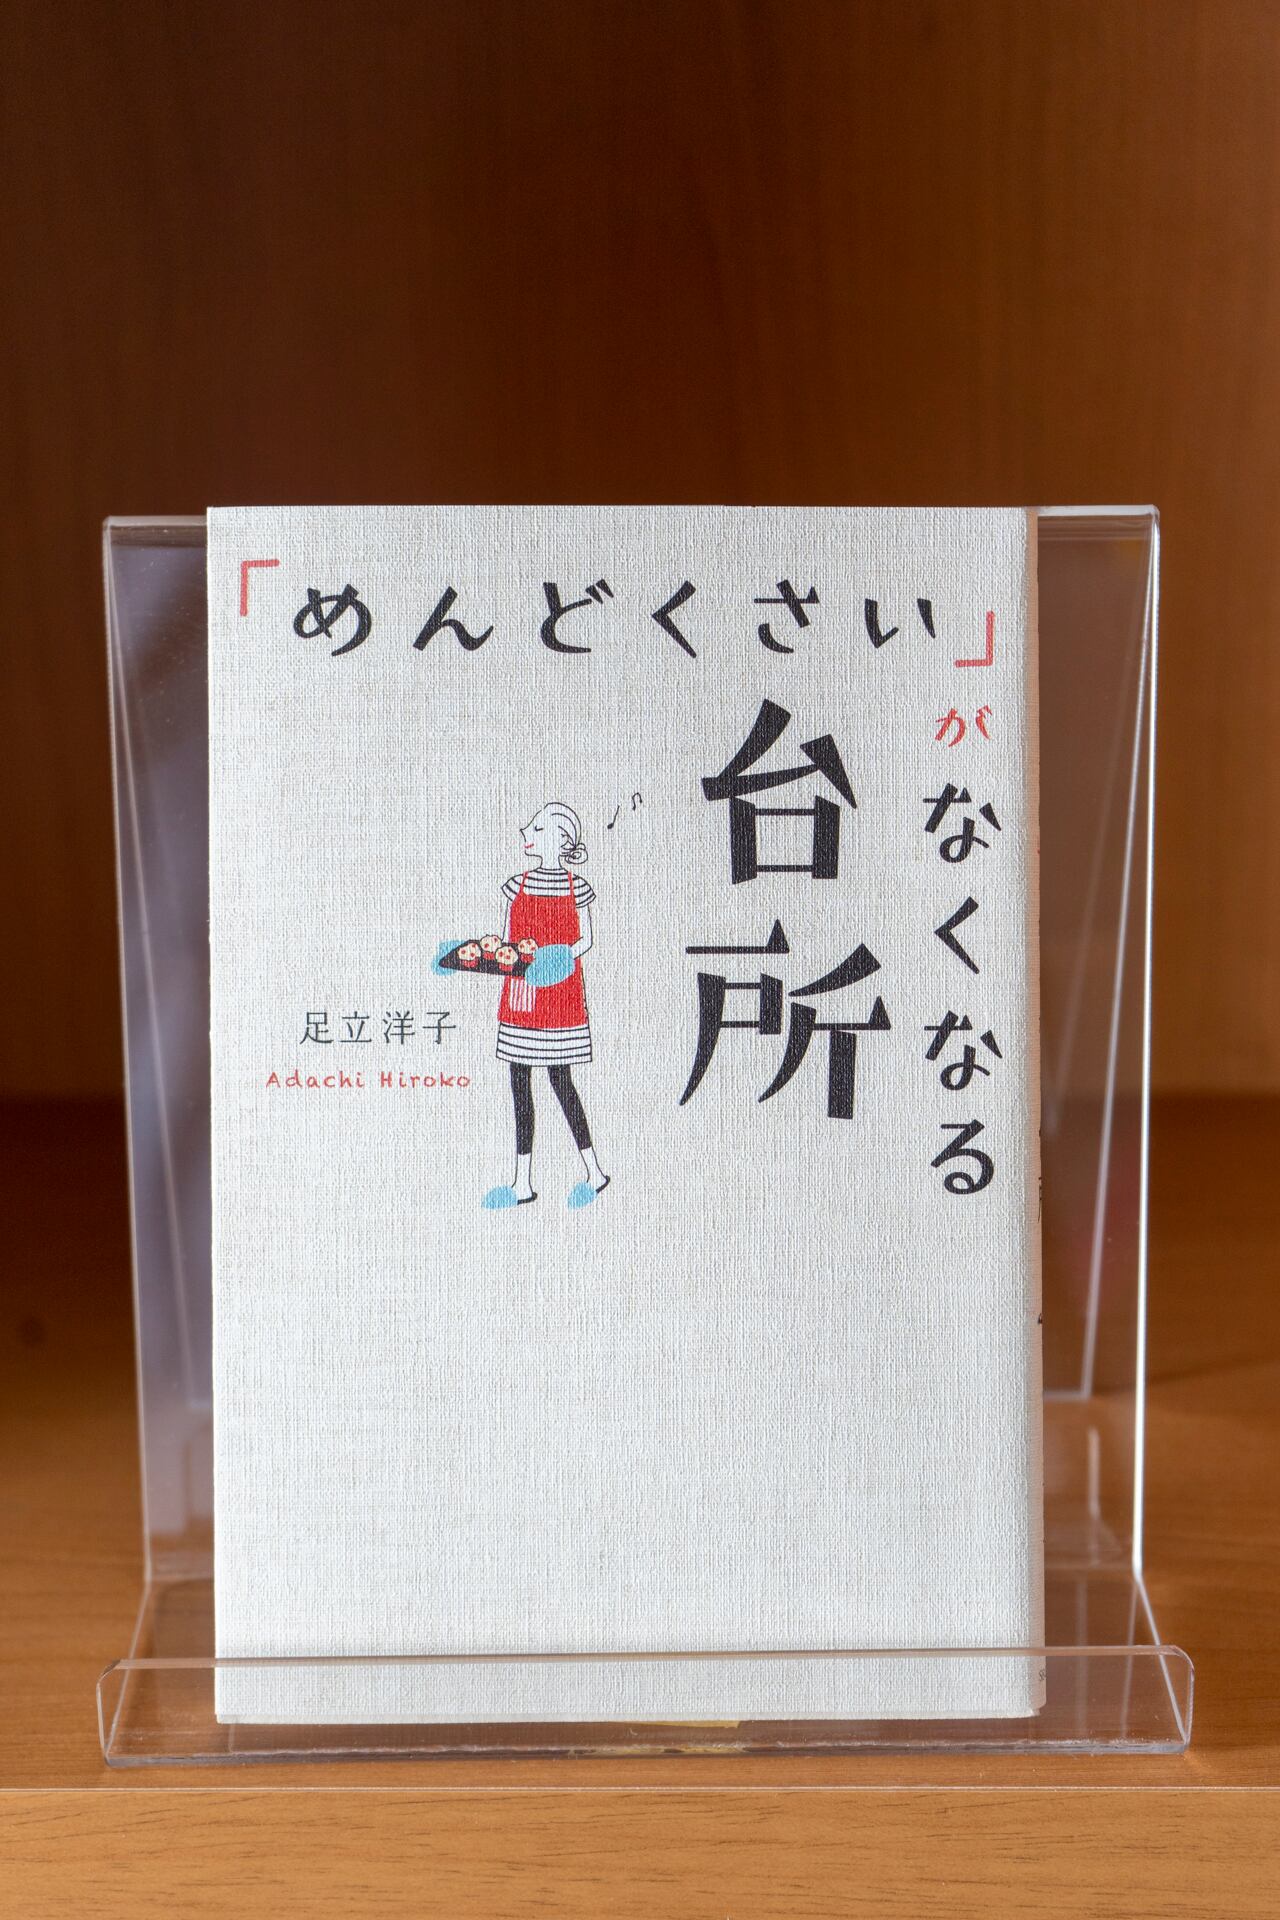 「めんどくさい」
がなくなる
台所
足立洋子
Adachi Hiroko